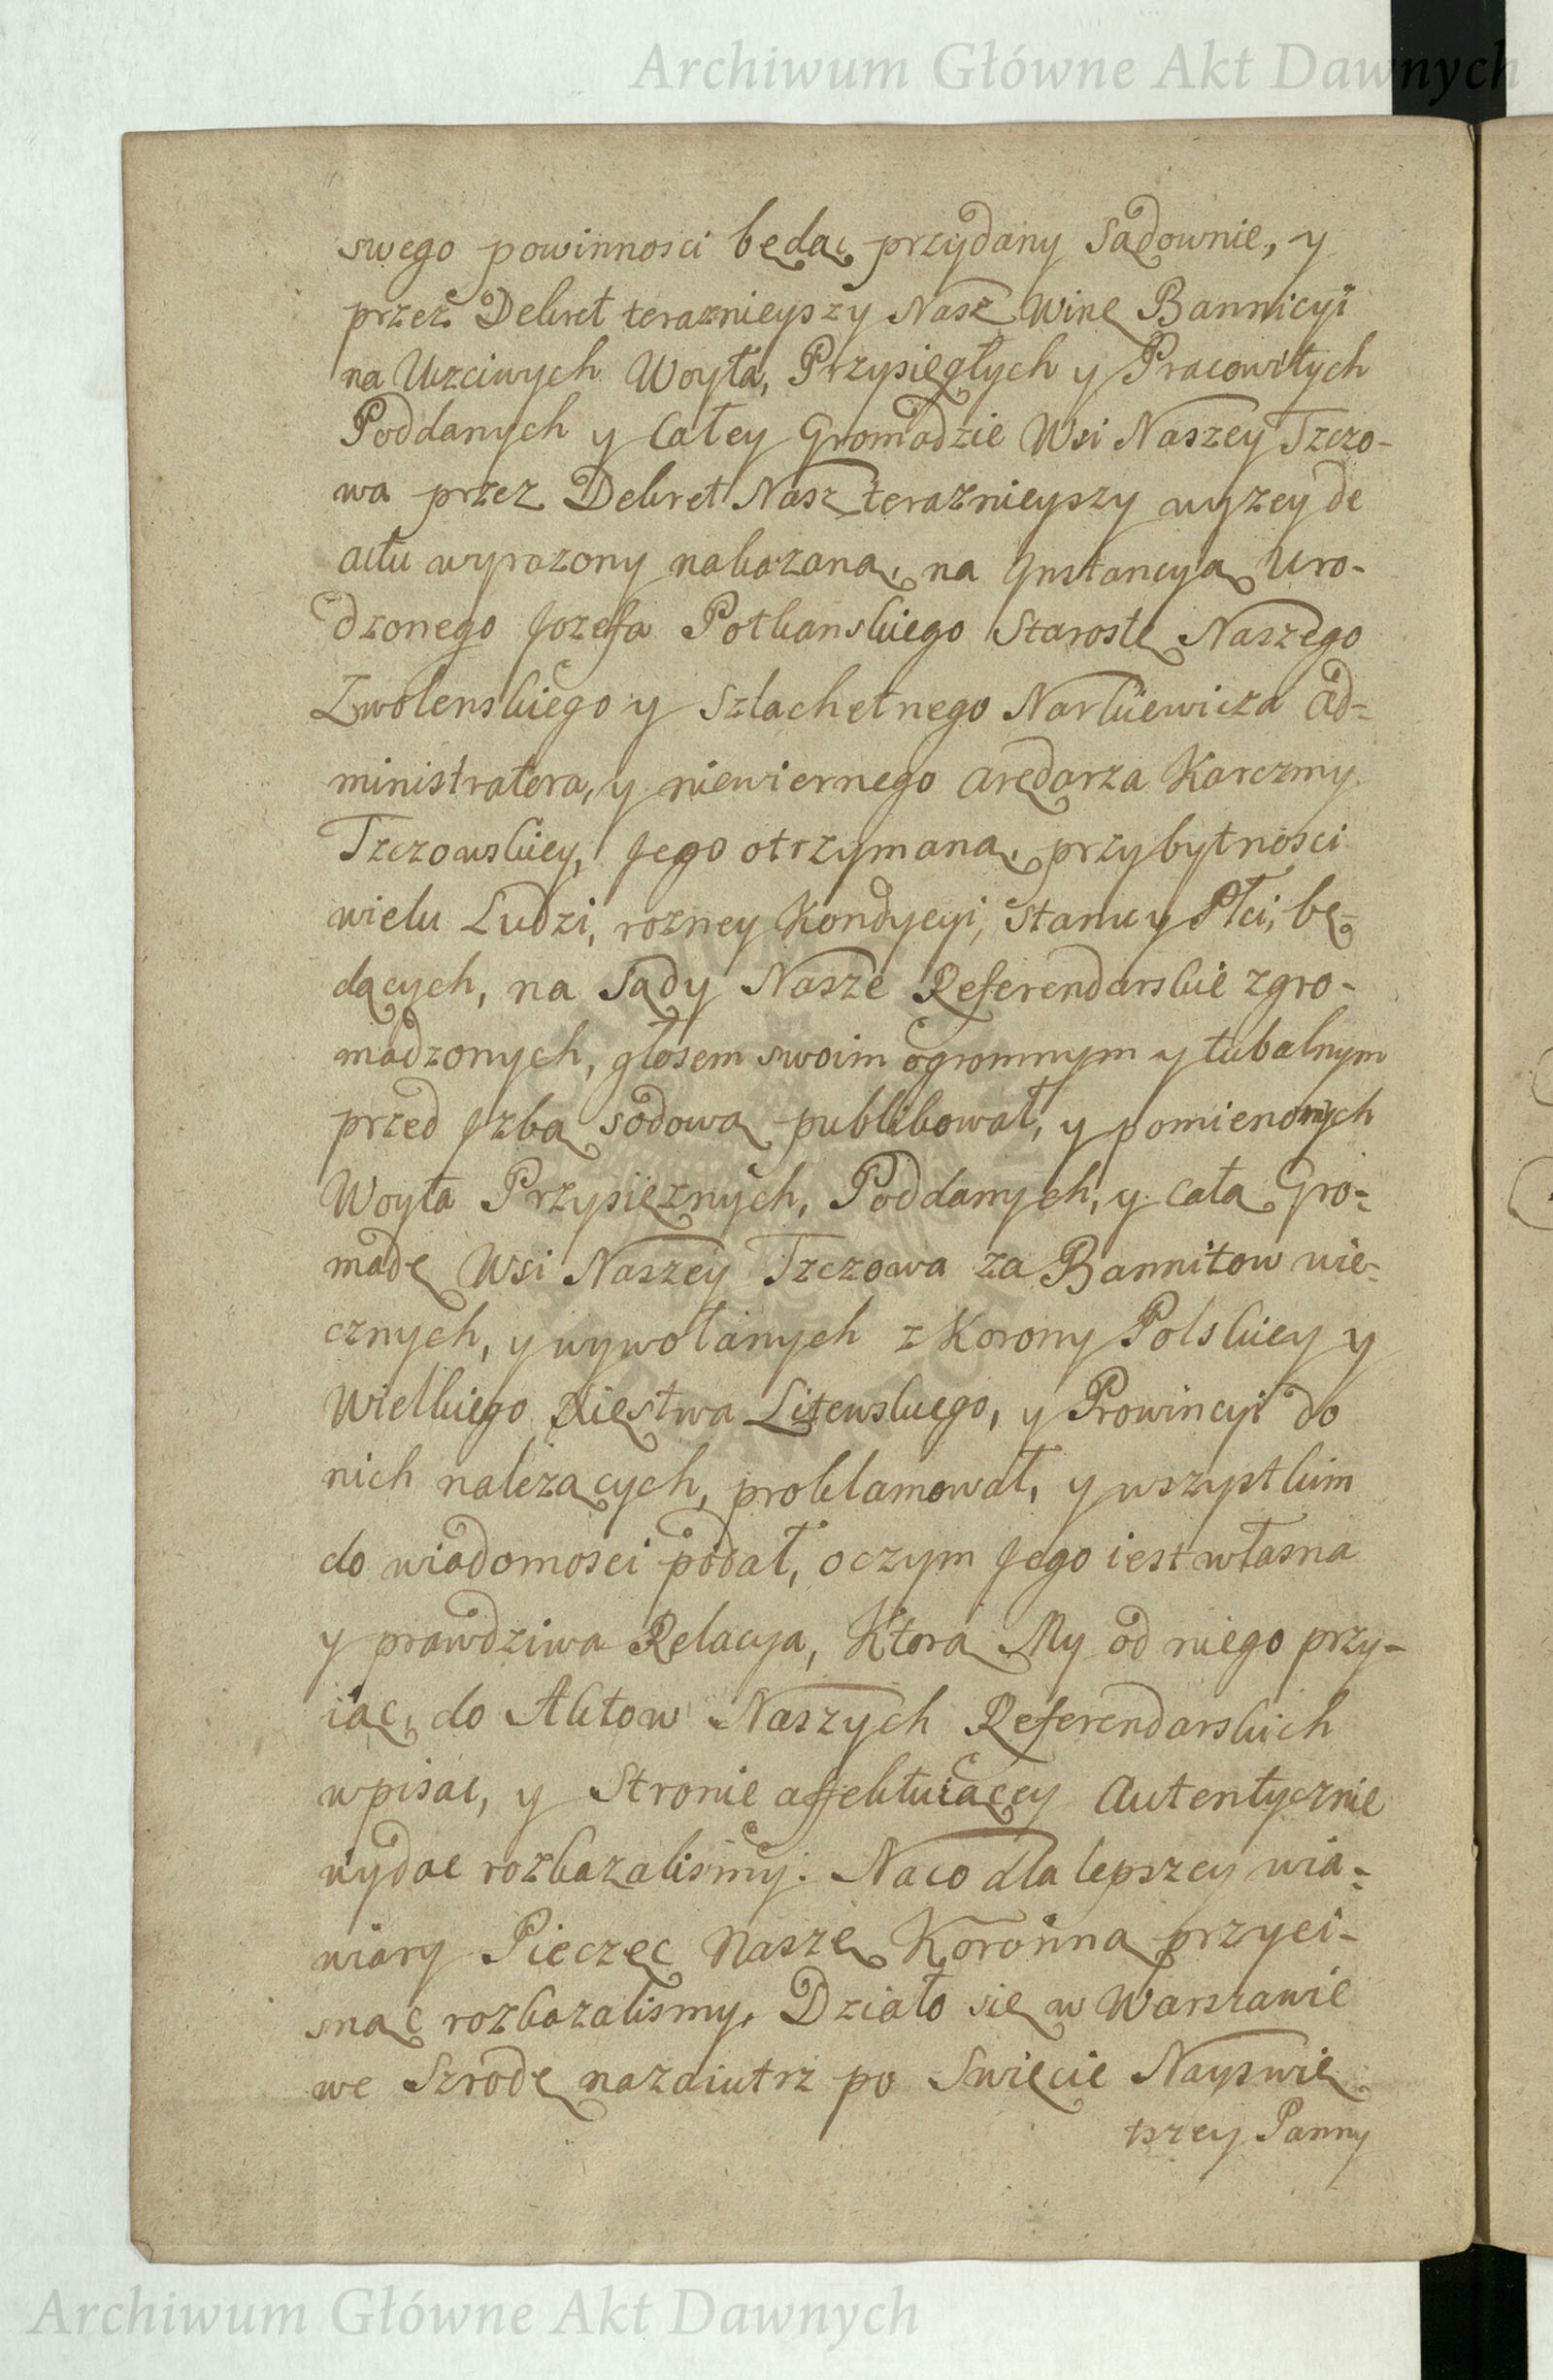 Archiwum Główne Akt Dawnych
swego powinnosci będąc przydany Sądownie, y
przez Dekret teraznieyszy Nasz Winę Bannicyi
na Uczciwych Woyta, Przysięgłych y Pracowitych
Poddanych y Całey Gromadzie Wsi Naszey Tzczo-
wa przez Dekret Nasz teraznieyszy wyzey de
actu wyrazony nakazaną, na Jnstancyą Uro-
dzonego Jozefa Potkanskiego Starostę Naszego
Zwolenskiego y Szlachetnego Narkiewicza Ad-
ministratora, y niewiernego arędarza Karczmy
Tzczowskiey, Jego otrzymaną, przybytnosci
wielu Ludzi, rozney Kondycyi, Stanu y Płci, bę-
dących, na Sądy Nasze Referendarskie zgro-
madzonych, głosem swoim ogromnym y tubalnym
przed Jzbą sądową publikował, y pomienonych
Woyta Przysięznych, Poddanych, y całą Gro-
madę Wsi Naszey Tzczowa za Bannitow wie-
cznych, y wywołanych z Korony Polskiey y
Wielkiego Xięstwa Litewskiego, y Prowincyi do
nich nalezących, proklamował, y wszystkim
do wiadomosci podał, oczym Jego iest własna
y prawdziwa Relacya, Ktorą My od niego przy-
iąc, do Aktow Naszych Referendarskich
wpisac, y Stronie affektuiącey Autentycznie
wydac rozkazalismy. Naco dla lepszey wia-
wiary Pieczęc Naszę Koronną przyci-
snąc rozkazalismy. Działo się w Warszawie
we Szrodę nazaiutrz po Swięcie Nayswię
tszey Panny
Archiwum Główne Akt Dawnych